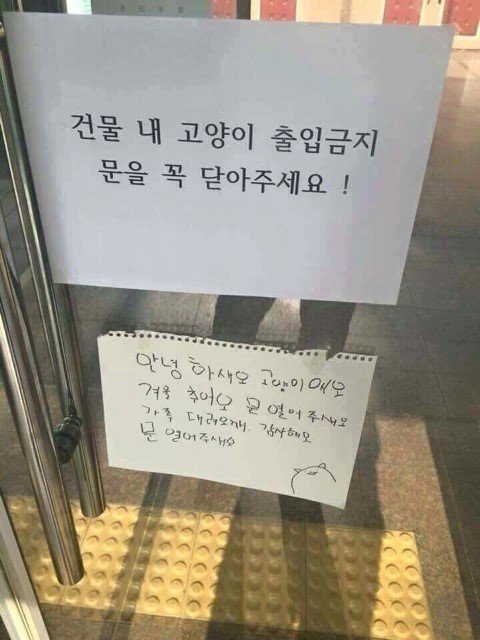 건물 내 고양이 출입금지
문을 꼭 닫아주세요 !
안녕 하새오 고양이 에오
겨울 추어오 문 열어 주새오
가족 대려오개. 감사해오
문 열어주새오